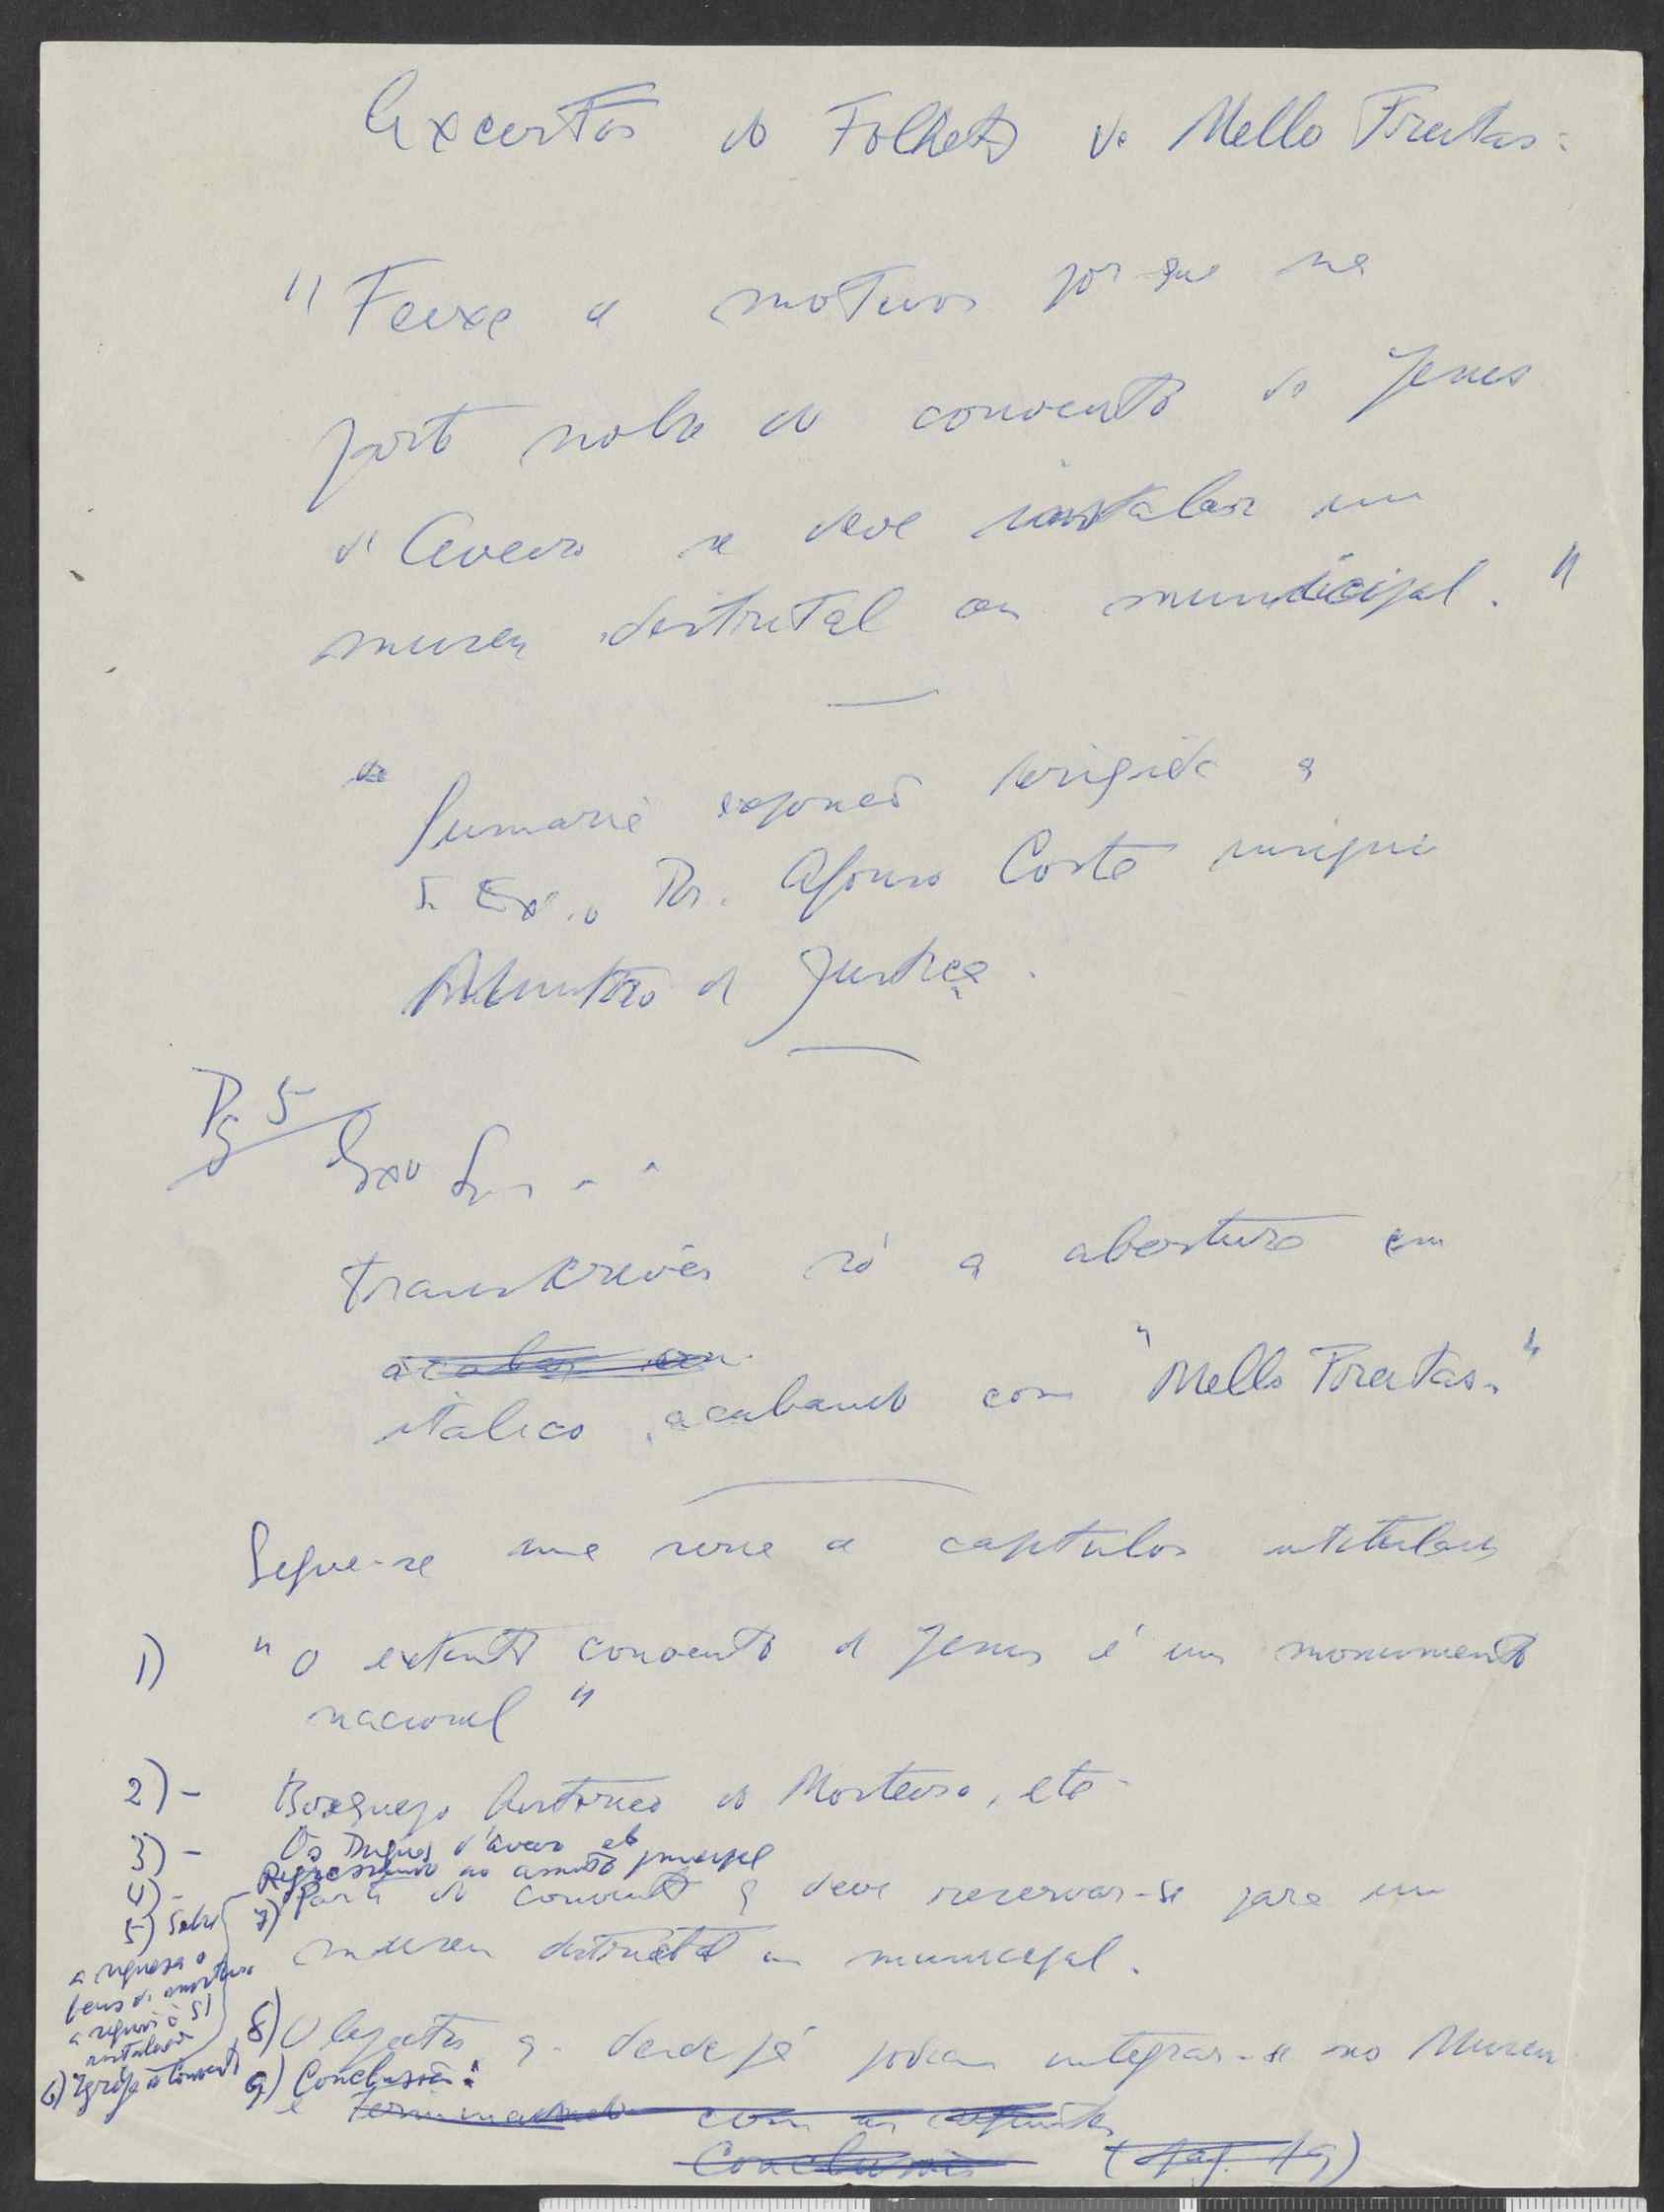 Excertos do Folheto de Mello Freitas:
"Feixe de motivos por que na
parte nobre do convento de Jesus
d'Aveiro se deve instalar um
museu distrital ou municipal."
Sumaria exposição dirigida a
S. Ex.o Dr. Afonso Costa insigne
Ministro da Justiça.
Pg 5
Exo Snr . . .
transcrever só a abertura em
acabar com
itálico, acabando com "Mello Freitas."
Segue-se uma serie de capitulos intitulados
1) "O extinto convento de Jesus é um monumento
nacional"
2) - Bosquejo historico do Mosteiro, etc.
3) - Os Duques d'Aveiro etc
4) - Regressando ao assunto principal
5) Sobre
a riqueza e
bens do mosteiro
a seguir à
instalação
6) Igreja do Convento
7) Parte do convento q deve reservar-se para um
museu distrital ou municipal.
8) Objectos q desde já podem integrar-se no Museu
9) Conclusão:
e terminando com as seguintes
Conclusões (pag. 19)